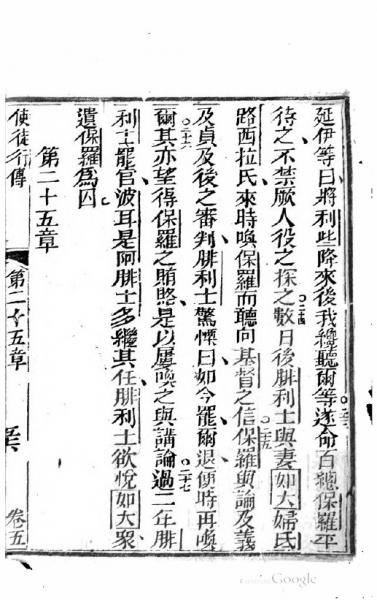 延伊等曰將利些降來後我纔聽爾等遂命百總保羅平
二十三
待之不禁厥人役之探之數日後腓利士與妻如大婦氏
二十四
路西拉氏來時喚保羅而聽向基督之信保羅與論及義
二十五
及貞及後之審判腓利士驚慄曰如今罷爾退便時再喚
爾其亦望得保羅之賄賂是以屢喚之與講論過二年腓
二十六
二十七
利士罷官波耳是阿腓士多繼其任腓利士欲悅如大衆
遺保羅為囚
第二十五章
使徒行傳
第二十五章
卷五
Google